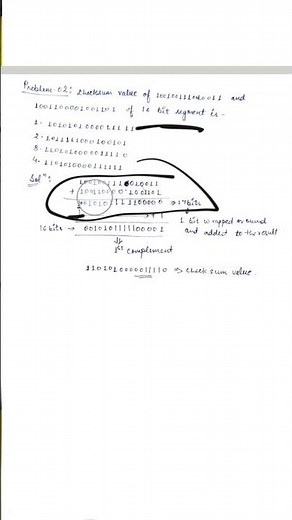 Problem-02: Checksum value of 1001001110010011 and
1001100001001101 of 16 bit segment is -
1- 1010101000011111
2- 1011111000100101
3- 1101010000011110
4- 1101010000111111
Solⁿ:
1001001110010011
+ 1001100001001101
⇒ 17 bits
+1 1 bit wrapped around
16 bits → 0010101111100001 and added to the result
1's complement
1101010000011110 ⇒ check sum value.